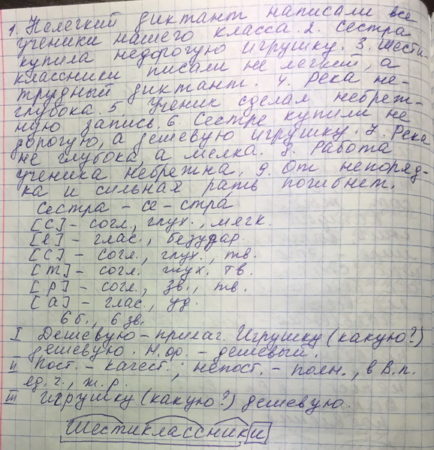 1. Нелегкий диктант написали все
ученики нашего класса. 2. Сестра
купила недорогую игрушку. 3. Шести-
классники писали не легкий, а
трудный диктант. 4. Река не-
глубока. 5 Ученик сделал небреж-
ную запись. 6. Сестре купили не
дорогую, а дешевую игрушку. 7. Река
не глубока, а мелка. 8. Работа
ученика небрежна. 9. От непоряд-
ка и сильная рать погибнет.
Сестра - се-стра
[с] - согл., глух., мягк.
[е] - глас., безудар
[с] - согл., глух., тв.
[т] - согл. глух. тв.
[р] - согл., зв., тв.
[а] - глас., уд.
6 б., 6 зв.
I Дешевую - прилаг. Игрушку (какую?)
дешевую. Н. ф. - дешевый.
II Пост. - качест.; непост. - полн., в В.п.
ед. ч., ж. р.
III Игрушку (какую?) дешевую.
Шестиклассники